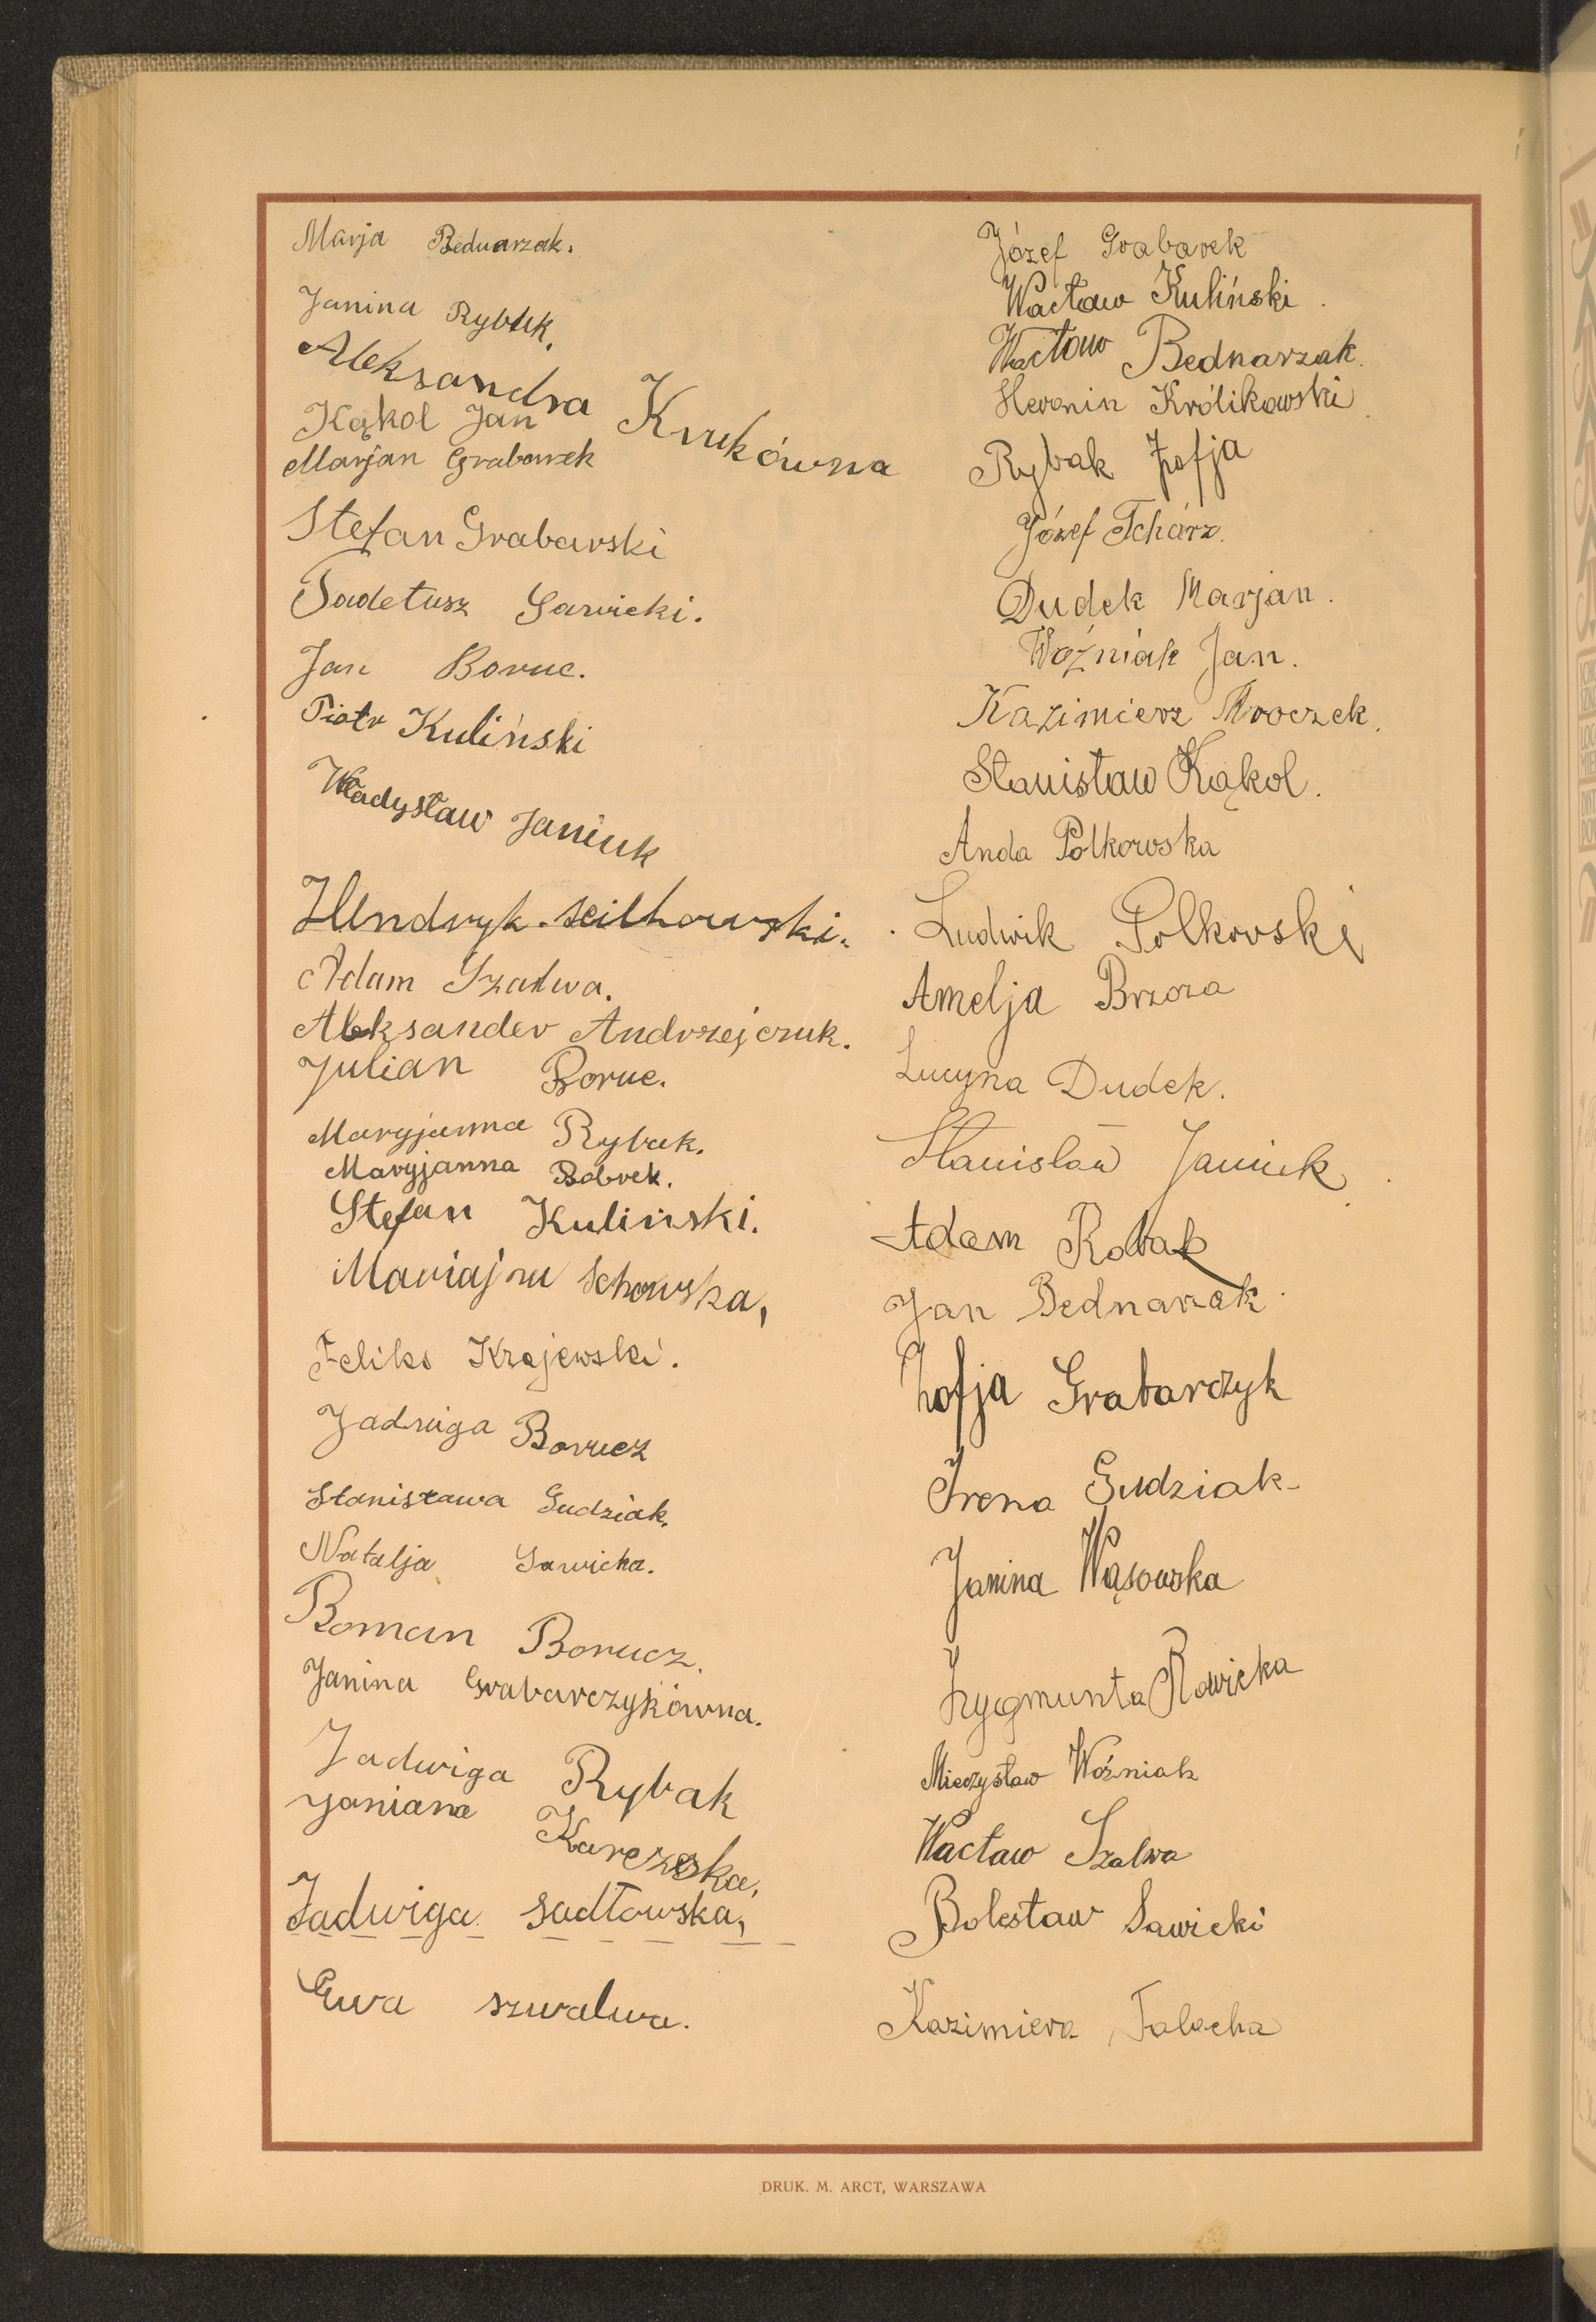 Marja Bednarzak.
Janina Rybak.
Aleksandra Krukówna
Kąkol Jan
Marjan Grabarek
Stefan Grabarski
Tadetusz Sawicki.
Jan Boruc.
Piotr Kuliński
Władysław Janiuk
Hendryk
Adam Szalwa.
Aleksander Andrzejczuk.
Julian Boruc.
Maryjanna Rybak.
Maryjanna Bobrek.
Stefan Kuliński.
Feliks Krajewski.
Jadwiga Borucz
Stanisława Gudziak.
Natalja Sawicka.
Roman Borucz.
Janina Grabarczykówna.
Jadwiga Rybak
Janiana Karczeska,
Jadwiga Sadłowska,
Ewa szwalwa.
Józef Grabarek
Wacław Kuliński.
Wacław Bednarzak.
Heronin Królikowski
Rybak Zofja
Józef Tchórz.
Dudek Marjan.
Woźniak Jan.
Kazimierz Mroczek.
Stanisław Kąkol.
Anda Polkowska
Ludwik Polkovski
Amelja Brzoza
Lucyna Dudek.
Stanisław Janiuk
Adam Robak
Jan Bednarzak
Zofja Grabarczyk
Irena Gudziak
Janina Wąsowska
Zygmunta Rowicka
Mieczysław Woźniak
Wacław Szalwa
Bolesław Sawicki
Kazimiera Falacha
DRUK. M. ARCT, WARSZAWA